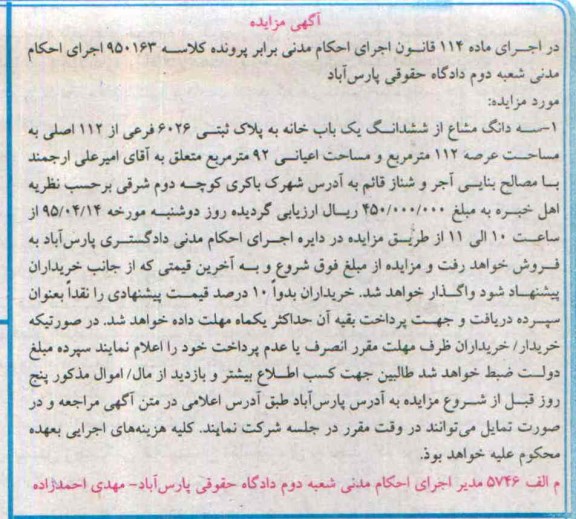 آگهی مزایده
در اجرای ماده ۱۱۴ قانون اجرای احکام مدنی برابر پرونده کلاسه ۹۵۰۱۶۳ اجرای احکام
مدنی شعبه دوم دادگاه حقوقی پارس‌آباد
مورد مزایده:
۱-سه دانگ مشاع از ششدانگ یک باب خانه به پلاک ثبتی ۶۰۲۶ فرعی از ۱۱۲ اصلی به
مساحت عرصه ۱۱۲ مترمربع و مساحت اعیانی ۹۲ مترمربع متعلق به آقای امیرعلی ارجمند
با مصالح بنایی آجر و شناز قائم به آدرس شهرک باکری کوچه دوم شرقی برحسب نظریه
اهل خبره به مبلغ ۴۵۰/۰۰۰/۰۰۰ ریال ارزیابی گردیده روز دوشنبه مورخه ۹۵/۰۴/۱۴ از
ساعت ۱۰ الی ۱۱ از طریق مزایده در دایره اجرای احکام مدنی دادگستری پارس‌آباد به
فروش خواهد رفت و مزایده از مبلغ فوق شروع و به آخرین قیمتی که از جانب خریداران
پیشنهاد شود واگذار خواهد شد. خریداران بدواً ۱۰ درصد قیمت پیشنهادی را نقداً بعنوان
سپرده دریافت و جهت پرداخت بقیه آن حداکثر یکماه مهلت داده خواهد شد. در صورتیکه
خریدار/ خریداران ظرف مهلت مقرر انصرف یا عدم پرداخت خود را اعلام نمایند سپرده مبلغ
دولت ضبط خواهد شد طالبین جهت کسب اطلاع بیشتر و بازدید از مال/ اموال مذکور پنج
روز قبل از شروع مزایده به آدرس پارس‌آباد طبق آدرس اعلامی در متن آگهی مراجعه و در
صورت تمایل می‌توانند در وقت مقرر در جلسه شرکت نمایند. کلیه هزینه‌های اجرایی بعهده
محکوم علیه خواهد بود.
م الف ۵۷۴۶ مدیر اجرای احکام مدنی شعبه دوم دادگاه حقوقی پارس‌آباد- مهدی احمدزاده